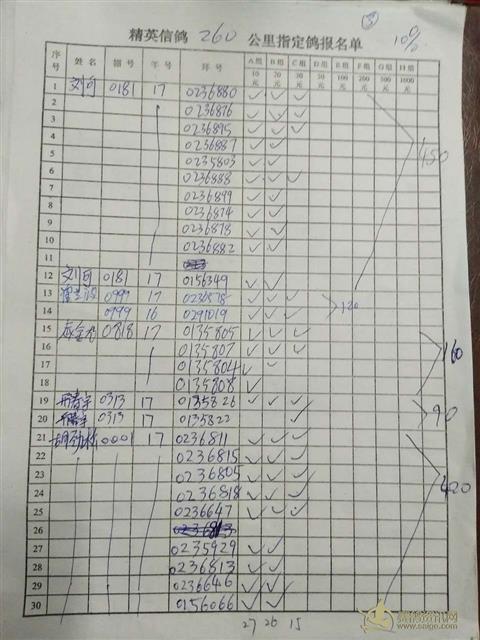 ③
10%
精英信鸽 260 公里指定鸽报名单
序号 姓名 棚号 年号 环号 A组10元 B组20元 C组30元 D组50元 E组100元 F组200元 G组500元 H组1000元
1 刘 0181 17 0236880 ✓ ✓ ✓
2 0236876 ✓ ✓ ✓
3 0236895 ✓ ✓ ✓
4 0236887 ✓ ✓ 450
5 0235803 ✓ ✓
6 0236888 ✓ ✓ ✓
7 0236899 ✓ ✓
8 0236874 ✓ ✓
9 0236878 ✓ ✓
10 0236882 ✓ ✓
11
12 刘 0181 17 0156349 ✓ ✓
13 0999 17 0236878 ✓ ✓ ✓ 120
14 0999 16 0291019 ✓ ✓ ✓
15 0818 17 0135805 ✓ ✓ ✓
16 0135807 ✓ ✓ ✓ 160
17 0135804 ✓ ✓
18 0135808 ✓
19 0313 17 0135826 ✓ ✓ ✓
20 0313 17 0135822 ✓ 90
21 0001 17 0236811 ✓ ✓ ✓
22 0236815 ✓ ✓ ✓
23 0236805 ✓ ✓ ✓
24 0236818 ✓ ✓ ✓ 420
25 0236647 ✓ ✓ ✓
26
27 0235929 ✓ ✓
28 0236813 ✓ ✓
29 0236646 ✓ ✓
30 0156066 ✓ ✓
27 26 15
www.saige.com